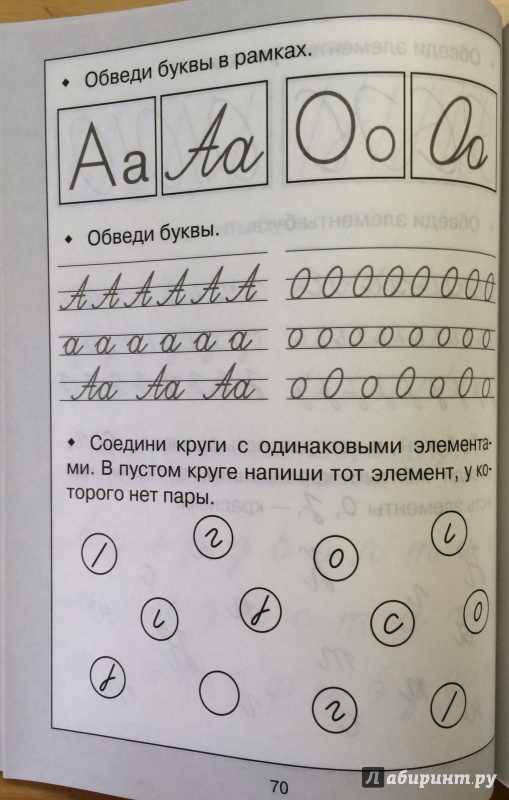 ♦ Обведи буквы в рамках.
Аа Аа Оо Оо
♦ Обведи буквы.
А А А А А А О О О О О О О О
а а а а а а о о о о о о о о
Аа Аа Аа О о О о О о О о
♦ Соедини круги с одинаковыми элемента-
ми. В пустом круге напиши тот элемент, у ко-
торого нет пары.
о
с
о
70
Лабиринт.ру